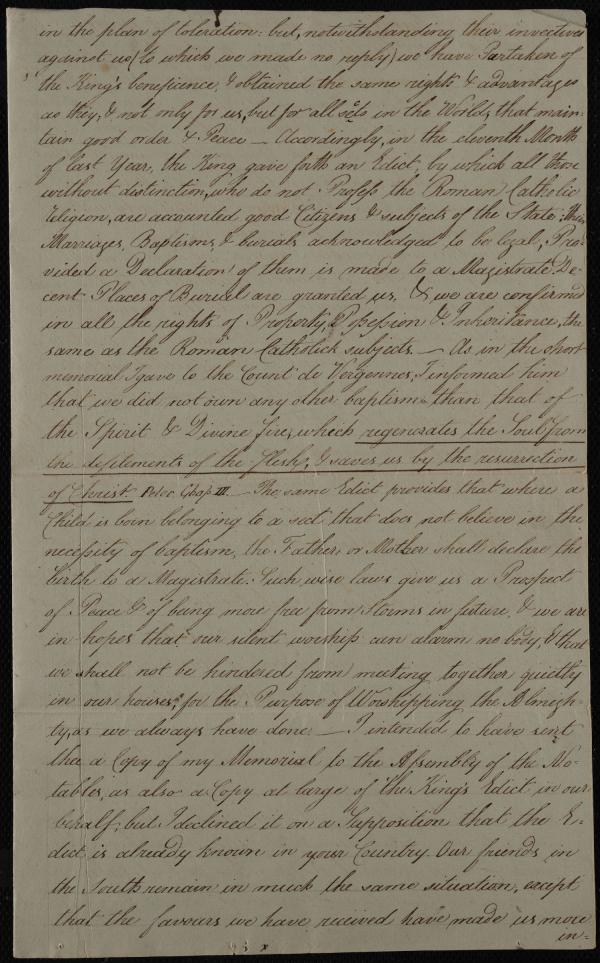 in the plan of toleration: but, notwithstanding their invectives
against us (to which we made no reply) we have Partaken of
the King's beneficence, & obtained the same rights & advantages
as they, & not only for us, but for all sects in the World, that main-
tain good order & Peace — Accordingly, in the eleventh Month
of last Year, the King gave forth an Edict, by which all those
without distinction, who do not Profess the Roman Catholic
religion, are accounted good Citizens & subjects of the State: their
Marriages, Baptisms, & burials acknowledged to be legal, Pro-
vided a Declaration of them is made to a Magistrate, De-
cent Places of Burial are granted us, & we are confirmed
in all the rights of Property, Possession & Inheritance, the
same as the Roman Catholick subjects. — As in the short
memorial I gave to the Count de Vergennes, I informed him
that we did not own any other baptism than that of
the Spirit & Divine fire, which regenerates the Soul from
the defilements of the flesh, & saves us by the resurrection
of Christ. Peter Chap III — The same Edict provides that where a
Child is born belonging to a sect that does not believe in the
necessity of baptism, the Father or Mother shall declare the
birth to a Magistrate. Such wise laws give us a Prospect
of Peace & of being more free from Storms in future, & we are
in hopes that our silent worship can alarm no body, & that
we shall not be hindered from meeting together quietly
in our houses, for the Purpose of Worshipping the Almigh-
ty, as we always have done — I intended to have sent
thee a Copy of my Memorial to the Assembly of the No-
tables, as also a Copy at large of the King's Edict in our
behalf; but I declined it on a Supposition that the E-
dict is already known in your Country. Our friends in
the South remain in much the same situation, except
that the favours we have received have made us more
in=